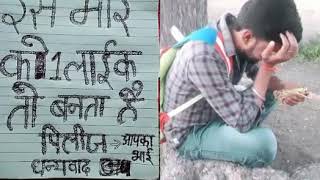 इस मोर
को 1 लाईक
तो बनता हैं
पिलीज → आपका
धन्यवाद भाई